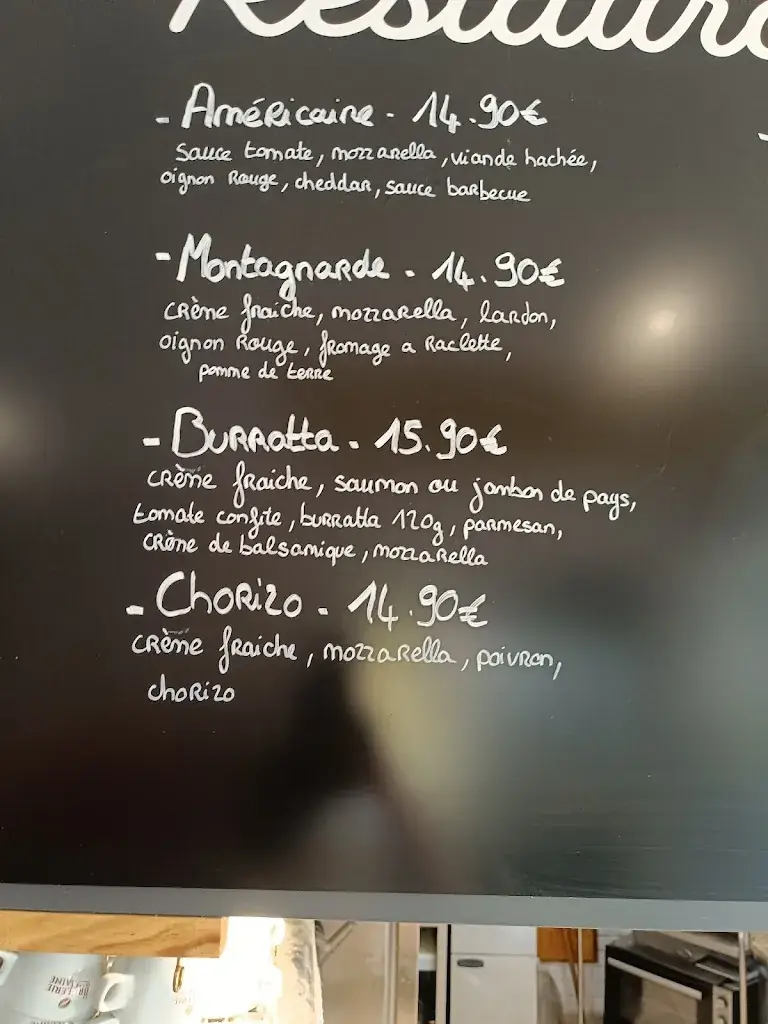 - Américaine - 14.90€
Sauce tomate, mozzarella, viande hachée,
oignon Rouge, cheddar, sauce barbecue
- Montagnarde - 14.90€
crème fraiche, mozzarella, lardon,
oignon Rouge, fromage a Raclette,
pomme de terre
- Burratta - 15.90€
crème fraiche, saumon ou jambon de pays,
tomate confite, burratta 120g, parmesan,
crème de balsamique, mozzarella
- Chorizo - 14.90€
crème fraiche, mozzarella, poivron,
chorizo